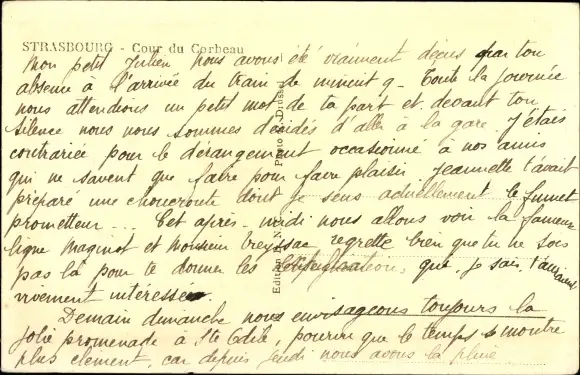 STRASBOURG - Cour du Corbeau
Mon petit Julien nous avons été vraiment déçus par ton
absence à l'arrivée du train de minuit 9 - Toute la journée
nous attendions un petit mot de ta part et devant ton
silence nous nous sommes décidés d'aller à la gare. J'étais
contrariée pour le dérangement occasionné à nos amis
qui ne savent que faire pour faire plaisir. Jeannette t'avait
préparé une choucroute dont je sens actuellement le fumet
prometteur ... Cet après-midi nous allons voir la fameuse
ligne maginot et Monsieur regrette bien que tu ne sois
pas là pour te donner les que, je sais, t'auraient
vivement intéressé.
Demain dimanche nous envisageons toujours la
jolie promenade à Ste Odile, pourvu que le temps se montre
plus clément, car depuis jeudi nous avons la pluie
Edition